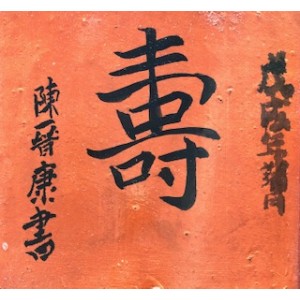 戊戌年蒲月
壽
陳晉康書